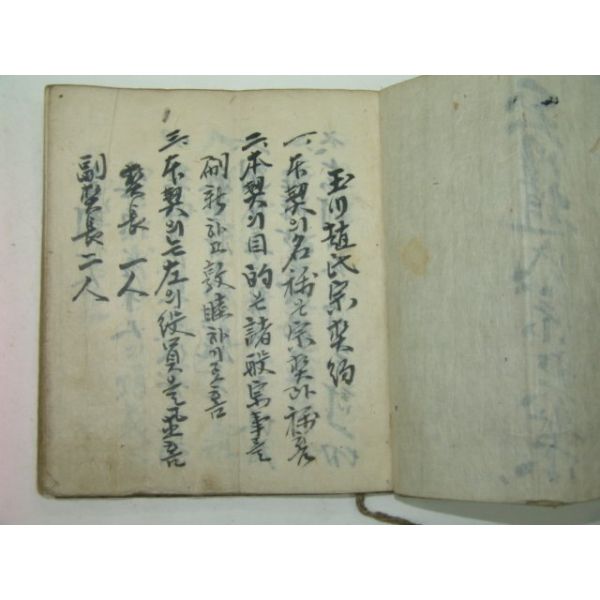 玉川趙氏宗契約
一、本契의名稱은宗契라稱홈
二、本契의目的은諸般宗事를
刷新하고敦睦하기로홈
三、本契의는左의役員을置홈
契長 一人
副契長 二人